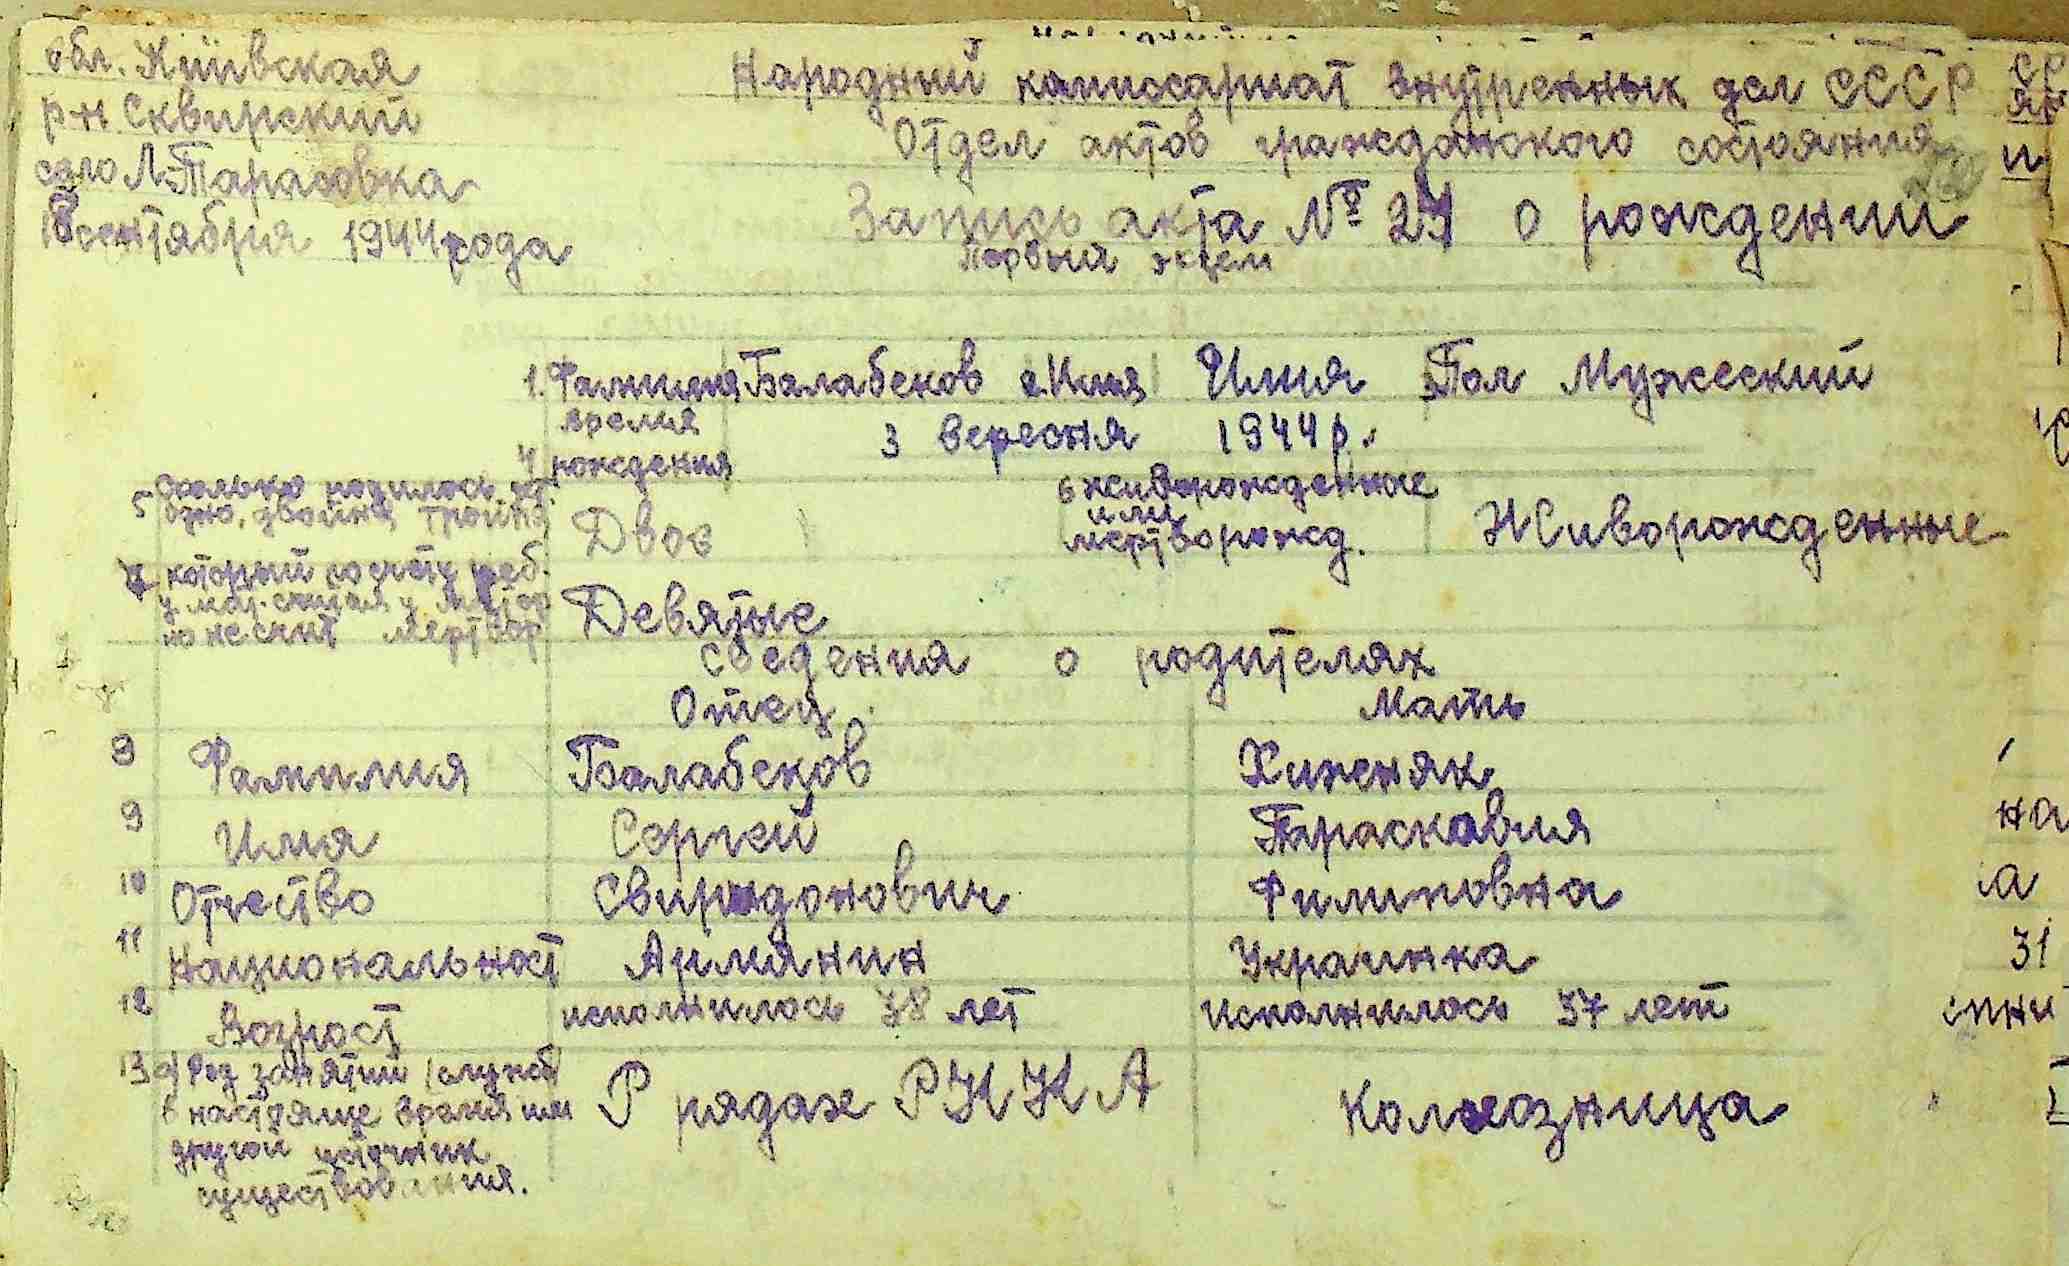 обл. Киівская
р-н Сквирский
село М. Тарасовка
18 сентября 1944 года
Народний комиссариат внутренных дел СССР
Отдел актов гражданского состояния
Запись акта № 27 о рождении
Первый экзем
1. Фамилия Балабеков 2. Имя Илия 3. Пол Мужеский
4 время рождения 3 вересня 1944 р.
5 Сколько родилось дет. одно, двойня, тройня Двое
6 живорожденные или мертворожд. Живорожденные
7 который по счету реб. у мат. считая у матер но не счит мертвор Девятые
Сведения о родителях
Отец Мать
8 Фамилия Балабеков Хижняк
9 Имя Сергей Параскавия
10 Отчество Свиридонович Филиповна
11 Национальност Армянин Украинка
12 Возрост исполнилось 38 лет исполнилось 37 лет
13 а) Род занятий (служб) Р рядах РККА Колхозница
в настояще время или
другой источник
существования.
на
а
31